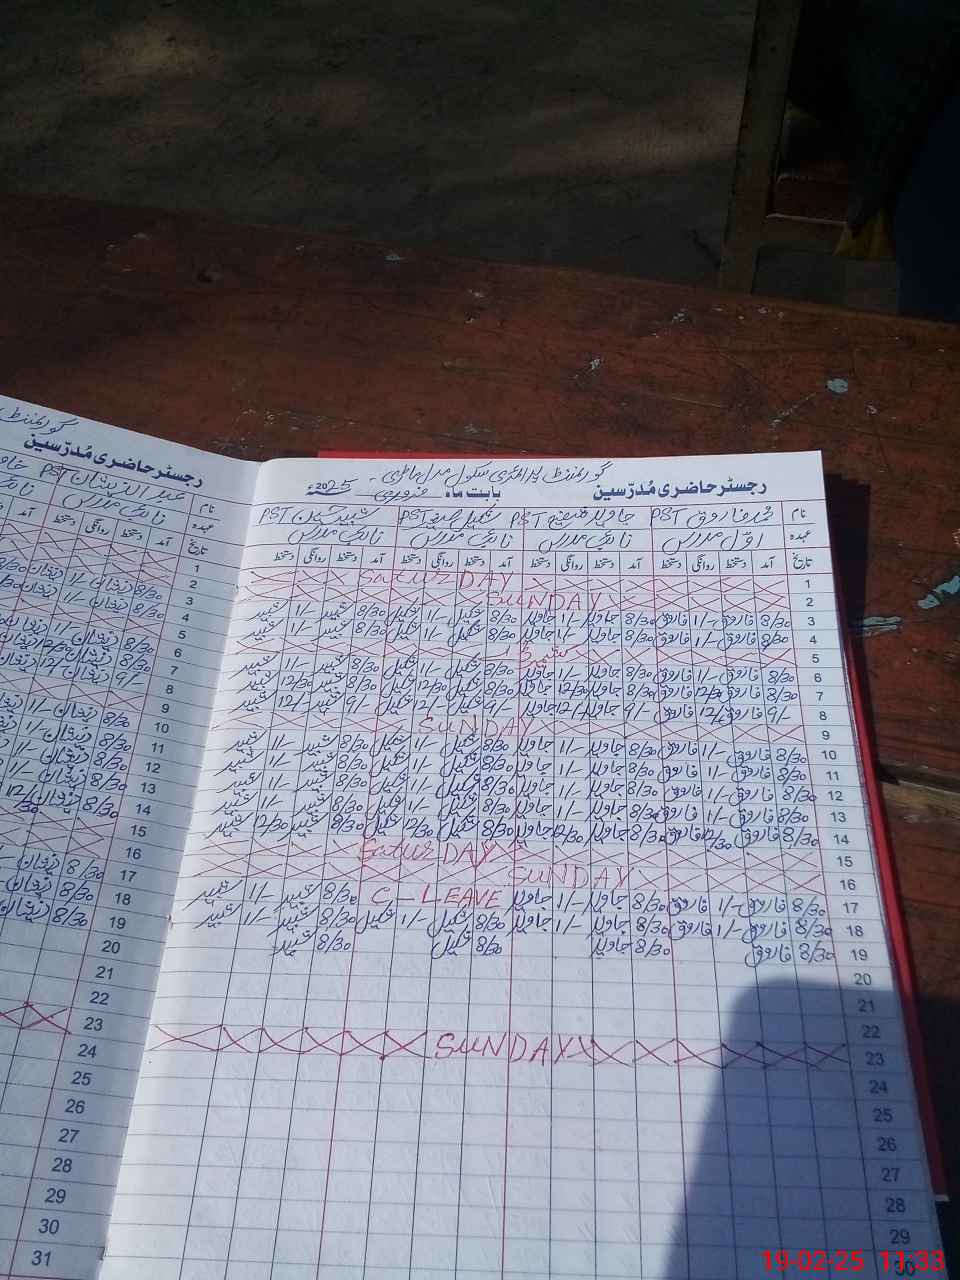 گورنمنٹ پرائمری سکول
رجسٹر حاضری مُدرّسین بابت ماہ فروری 2025ء
نام محمد فاروق PST جاوید PST شکیل PST شبیر PST
عہدہ اول مدرس نائب مدرس نائب مدرس نائب مدرس
تاریخ آمد دستخط روانگی دستخط آمد دستخط روانگی دستخط آمد دستخط روانگی دستخط آمد دستخط روانگی دستخط
1 Satur DAY
2 SUNDAY
3 8/30 فاروق 1/- فاروق 8/30 جاوید 1/- جاوید 8/30 شکیل 1/- شکیل 8/30 شبیر 1/- شبیر
4 8/30 فاروق 1/- فاروق 8/30 جاوید 1/- جاوید 8/30 شکیل 1/- شکیل 8/30 شبیر 1/- شبیر
5
6 8/30 فاروق 1/- فاروق 8/30 جاوید 1/- جاوید 8/30 شکیل 1/- شکیل 8/30 شبیر 1/- شبیر
7 8/30 فاروق 12/30 فاروق 8/30 جاوید 12/30 جاوید 8/30 شکیل 12/30 شکیل 8/30 شبیر 12/30 شبیر
8 9/- فاروق 12/- فاروق 9/- جاوید 12/- جاوید 9/- شکیل 12/- شکیل 9/- شبیر 12/- شبیر
9 SUNDAY
10 8/30 فاروق 1/- فاروق 8/30 جاوید 1/- جاوید 8/30 شکیل 1/- شکیل 8/30 شبیر 1/- شبیر
11 8/30 فاروق 1/- فاروق 8/30 جاوید 1/- جاوید 8/30 شکیل 1/- شکیل 8/30 شبیر 1/- شبیر
12 8/30 فاروق 1/- فاروق 8/30 جاوید 1/- جاوید 8/30 شکیل 1/- شکیل 8/30 شبیر 1/- شبیر
13 8/30 فاروق 1/- فاروق 8/30 جاوید 1/- جاوید 8/30 شکیل 1/- شکیل 8/30 شبیر 1/- شبیر
14 8/30 فاروق 12/30 فاروق 8/30 جاوید 12/30 جاوید 8/30 شکیل 12/30 شکیل 8/30 شبیر 12/30 شبیر
15 Satur DAY
16 SUNDAY
17 8/30 فاروق 1/- فاروق 8/30 جاوید 1/- جاوید C-LEAVE 8/30 شبیر 1/- شبیر
18 8/30 فاروق 1/- فاروق 8/30 جاوید 1/- جاوید 8/30 شکیل 1/- شکیل 8/30 شبیر 1/- شبیر
19 8/30 فاروق 8/30 جاوید 8/30 شکیل 8/30 شبیر
20
21
22
23 SUNDAY
24
25
26
27
28
29
30
گورنمنٹ
رجسٹر حاضری مُدرّسین
نام PST
عہدہ نائب مدرس
تاریخ آمد دستخط روانگی دستخط آمد
1
2
3 8/30 ذیشان 1/- ذیشان 8/30
4 8/30 ذیشان 1/- ذیشان
5
6 8/30 ذیشان 1/- ذیشان
7 8/30 ذیشان 12/30 ذیشان
8 9/- ذیشان 12/- ذیشان
9
10 8/30 ذیشان 1/- ذیشان
11 8/30 ذیشان 1/- ذیشان
12 8/30 ذیشان 1/- ذیشان
13 8/30 ذیشان 1/- ذیشان
14 8/30 ذیشان 12/30
15
16
17 8/30 ذیشان
18 8/30 ذیشان
19 8/30 ذیشان
20
21
22
23
24
25
26
27
28
29
30
31
19-02-25 11:33